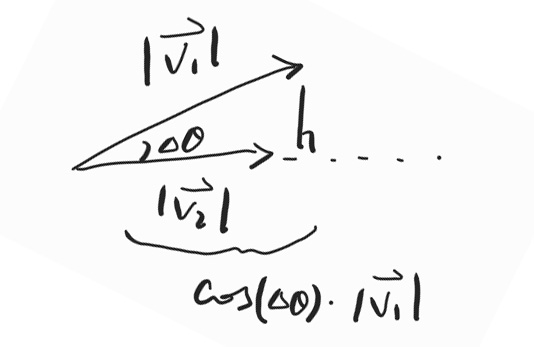 |v₁⃗|
Δθ
h
|v₂⃗|
cos(Δθ)·|v₁⃗|